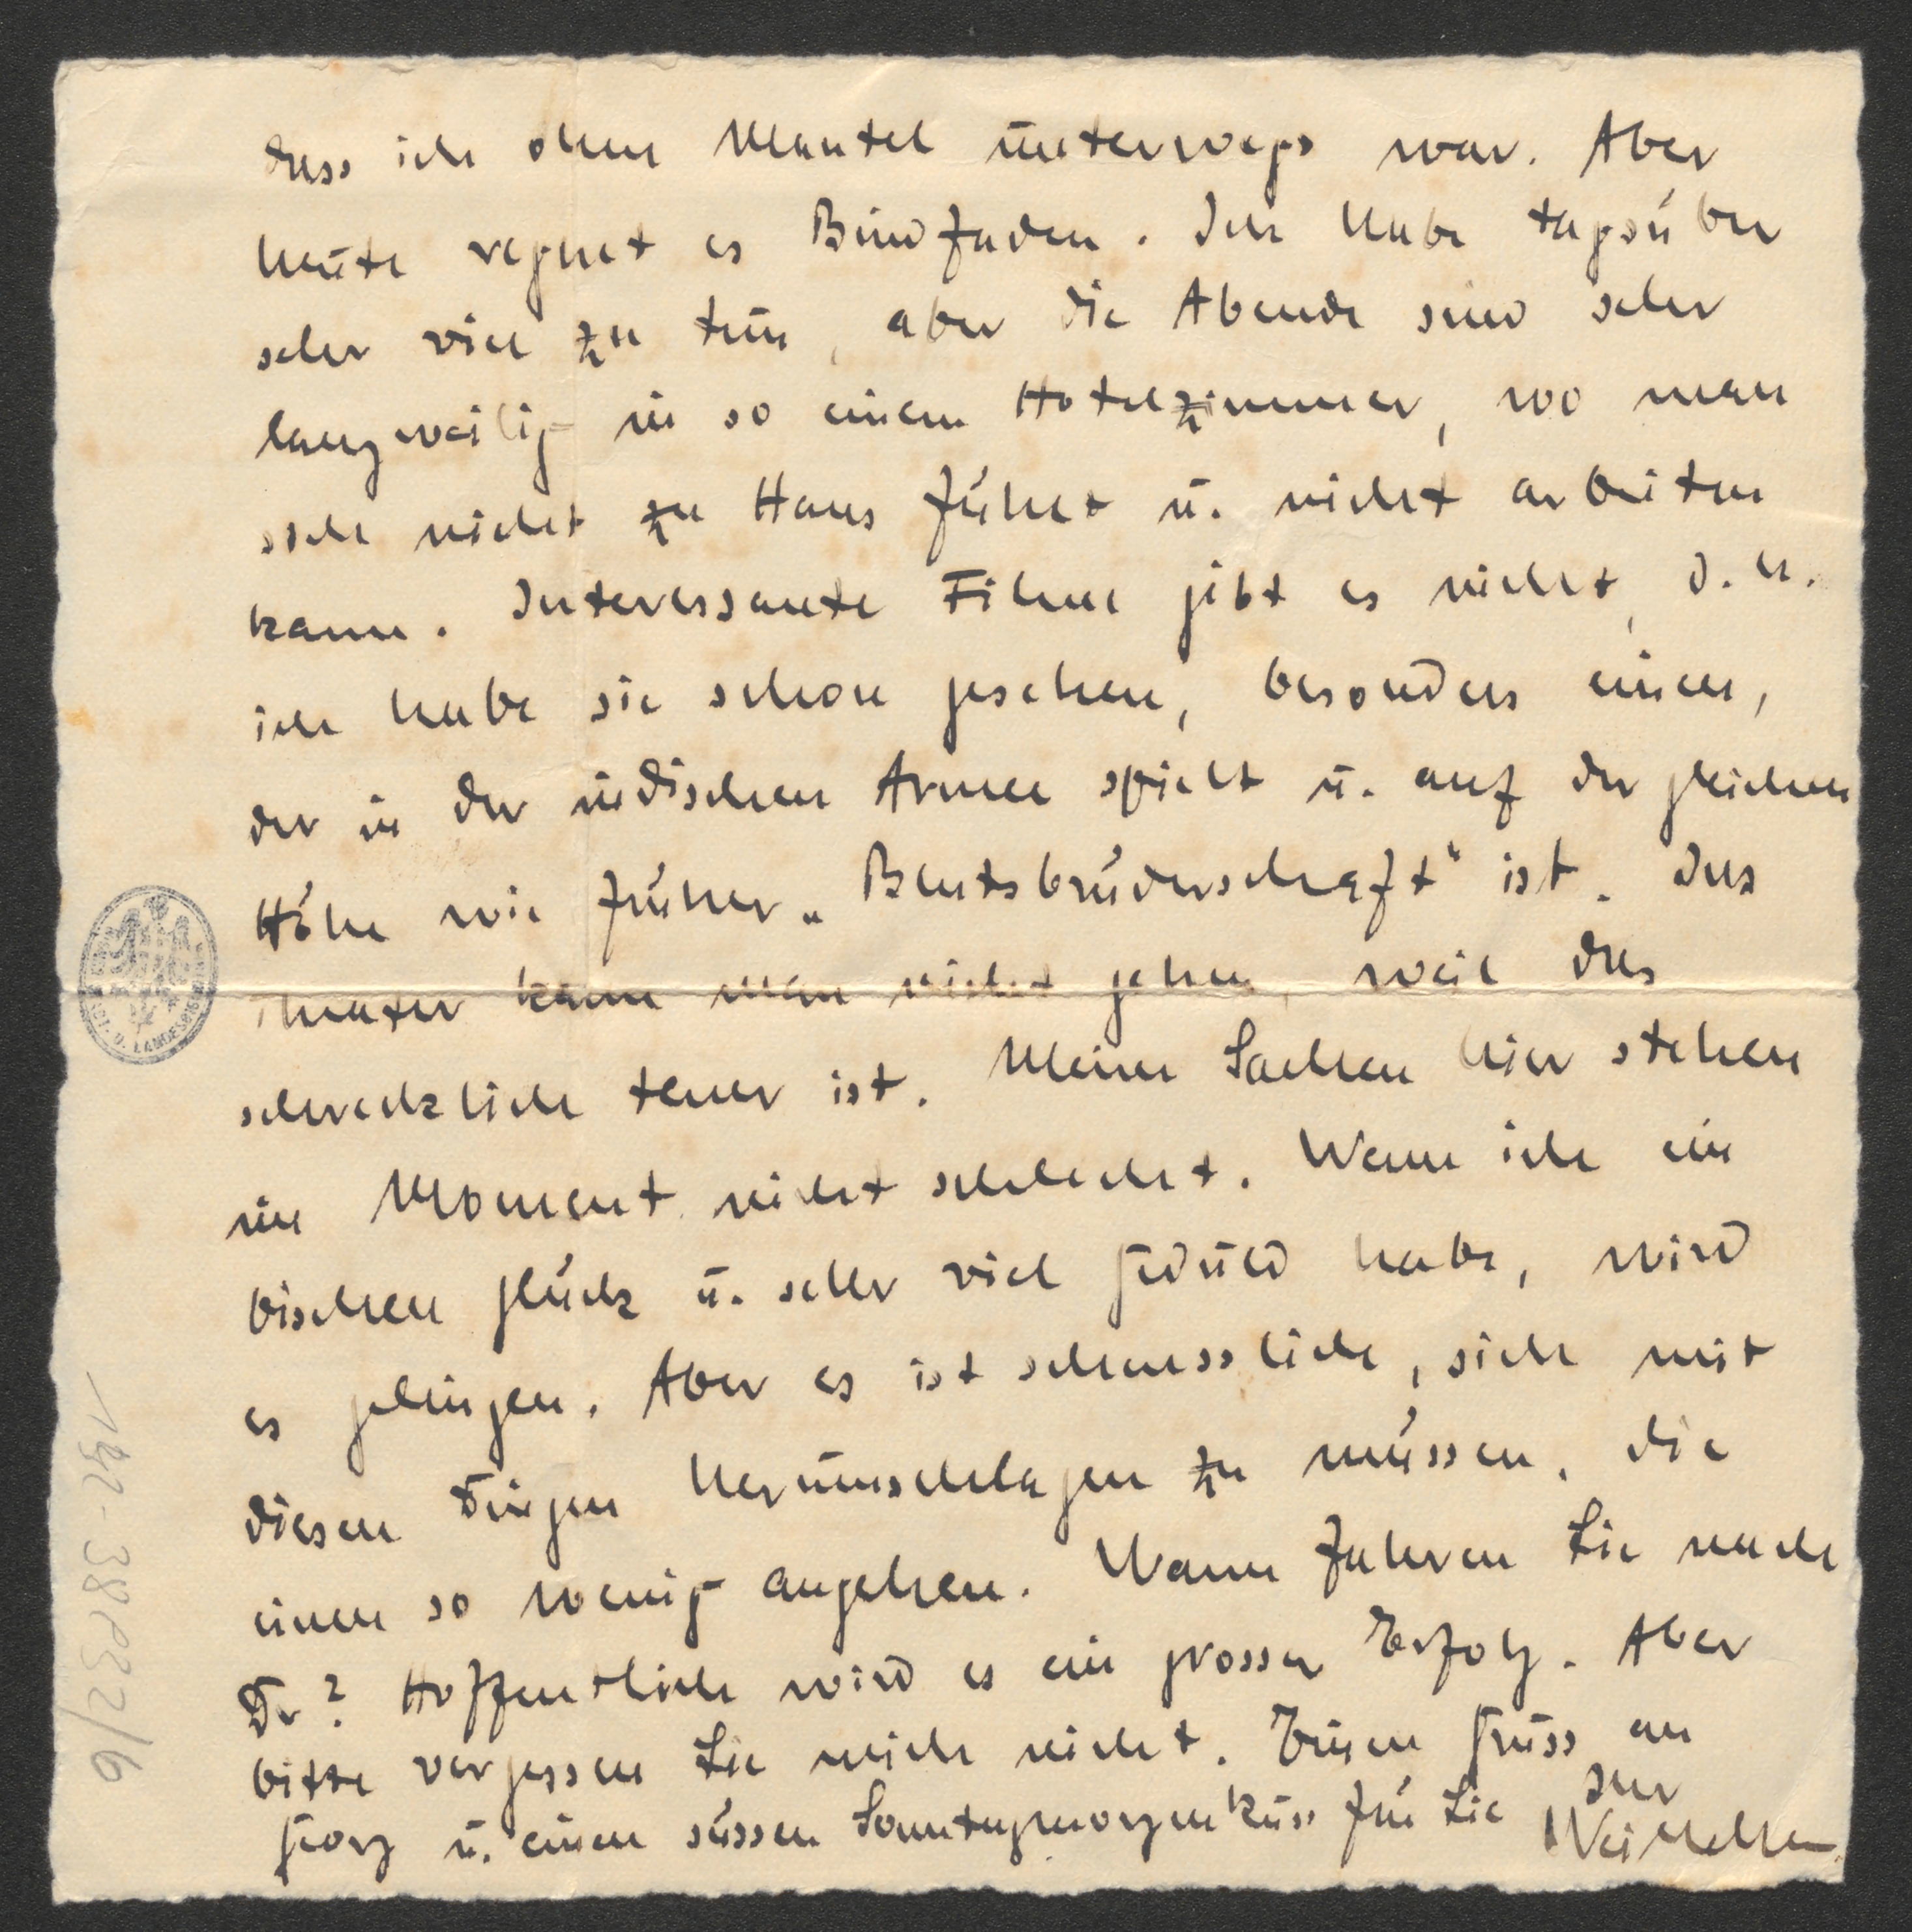 dass ich ohne Mantel unterwegs war. Aber
heute regnet es Bindfaden. Ich habe tagsüber
sehr viel zu tun, aber die Abende sind sehr
langweilig in so einem Hotelzimmer, wo man
sich nicht zu Haus fühlt u. nicht arbeiten
kann. Interessante Filme gibt es nicht, d. h.
ich habe sie schon gesehen, besonders einen,
der in der indischen Armee spielt u. auf der gleichen
Höhe wie früher „Blutsbrüderschaft" ist. Ins
Theater kann man nicht gehen, weil das
schrecklich teuer ist. Meine Sachen hier stehen
im Moment nicht schlecht. Wenn ich ein
bischen Glück u. sehr viel Geduld habe, wird
es gelingen. Aber es ist scheusslich, sich mit
diesen Dingen herumschlagen zu müssen, die
einen so wenig angehen. Wann fahren Sie nach
Dr? Hoffentlich wird es ein grosser Erfolg. Aber
bitte vergessen Sie mich nicht. Einen Gruss an
Georg u. einen süssen Sonntagmorgenkuss für Sie Ihr
192-38P32/6
U. LANDESBIBL